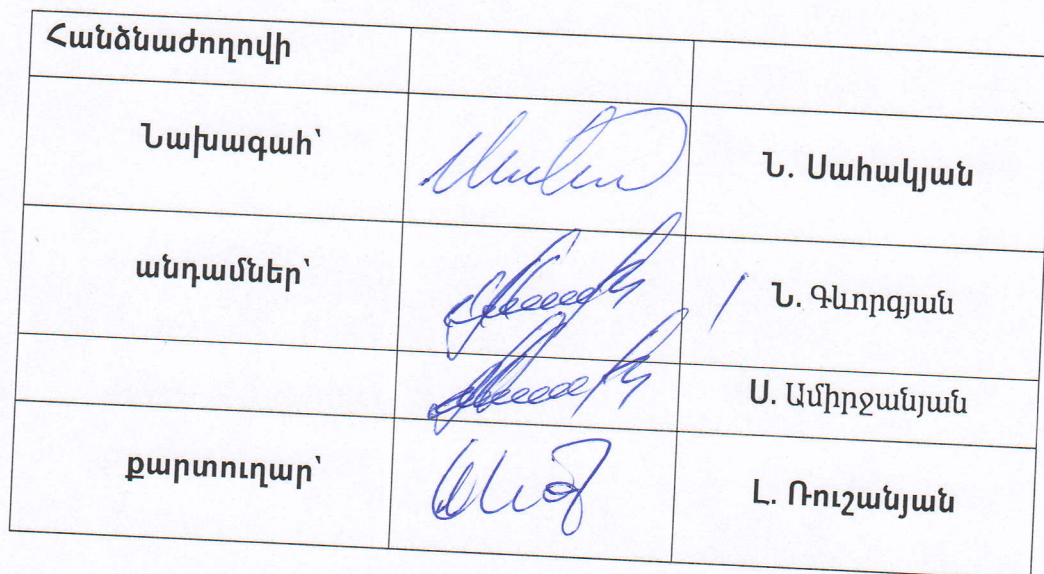 Հանձնաժողովի
Նախագահ՝ Ն. Սահակյան
անդամներ՝ Ն. Գևորգյան
Ս. Ամիրջանյան
քարտուղար՝ Լ. Ռուշանյան